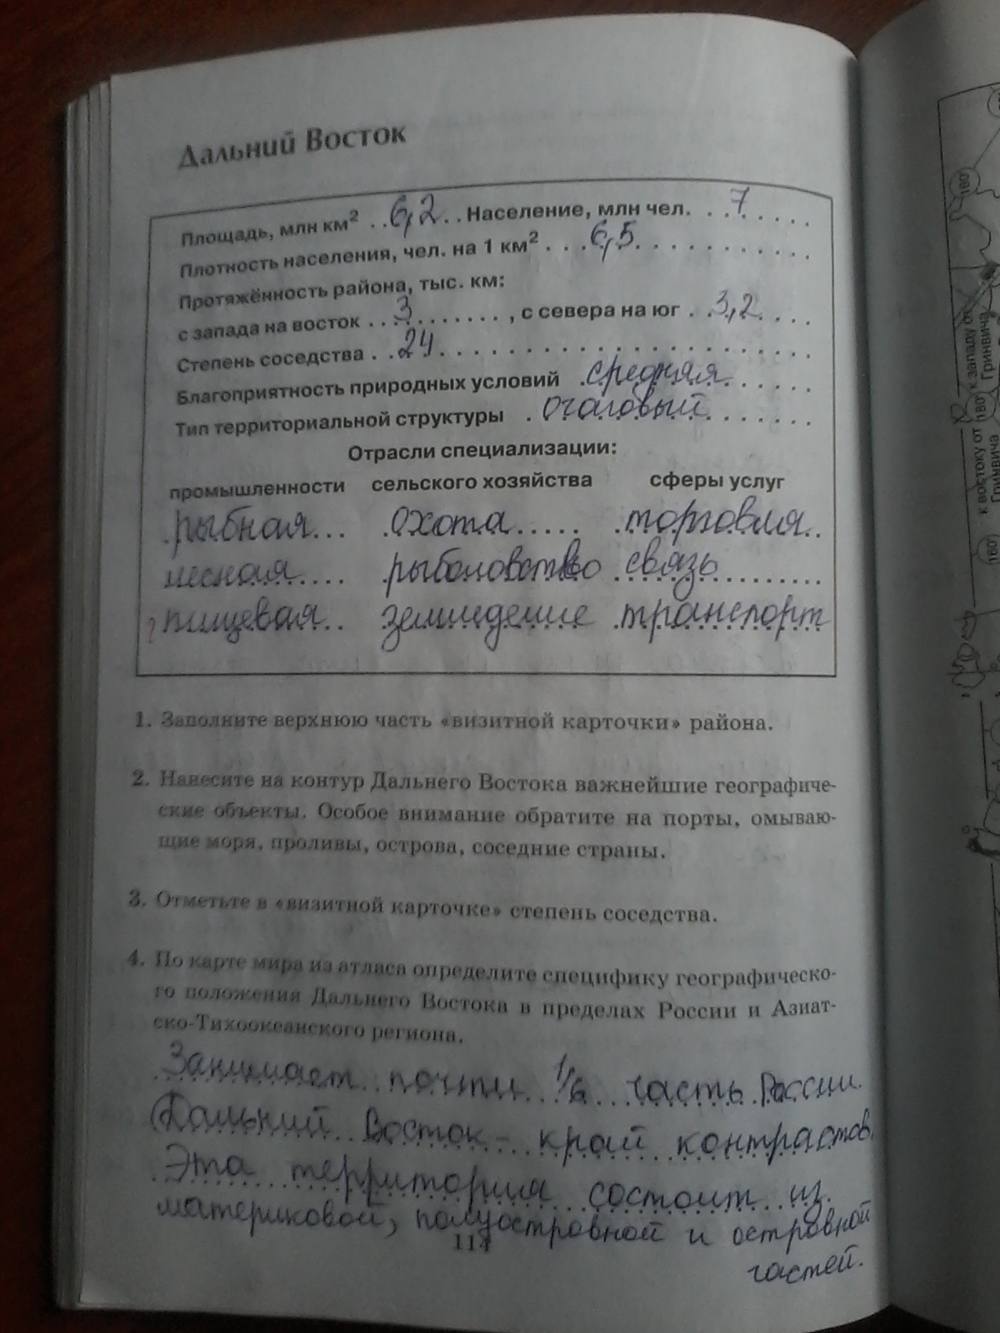 Дальний Восток
Площадь, млн км² . . 6,2 . . Население, млн чел. . . 7 . . . . .
Плотность населения, чел. на 1 км² . . . 6,5 . . . . . . . . . .
Протяжённость района, тыс. км:
с запада на восток . . . 3 . . . . . . , с севера на юг . . 3,2 . . . .
Степень соседства . . 24 . . . . . . . . . . . . . . . . . .
Благоприятность природных условий . средняя . . . . .
Тип территориальной структуры . очаговый . . . . . .
Отрасли специализации:
промышленности сельского хозяйства сферы услуг
рыбная . . . охота . . . . . торговля . .
лесная . . . . рыболовство связь . . . . . . . . .
? пищевая . . земледение транспорт
1. Заполните верхнюю часть «визитной карточки» района.
2. Нанесите на контур Дальнего Востока важнейшие географиче-
ские объекты. Особое внимание обратите на порты, омываю-
щие моря, проливы, острова, соседние страны.
3. Отметьте в «визитной карточке» степень соседства.
4. По карте мира из атласа определите специфику географическо-
го положения Дальнего Востока в пределах России и Азиат-
ско-Тихоокеанского региона.
Занимает почти 1/6 часть России.
Дальний Восток - край контрастов.
Эта территория состоит из
материковой, полуостровной и островной
частей.
114
к востоку от Гринвича
к западу от Гринвича
180°
180°
160°